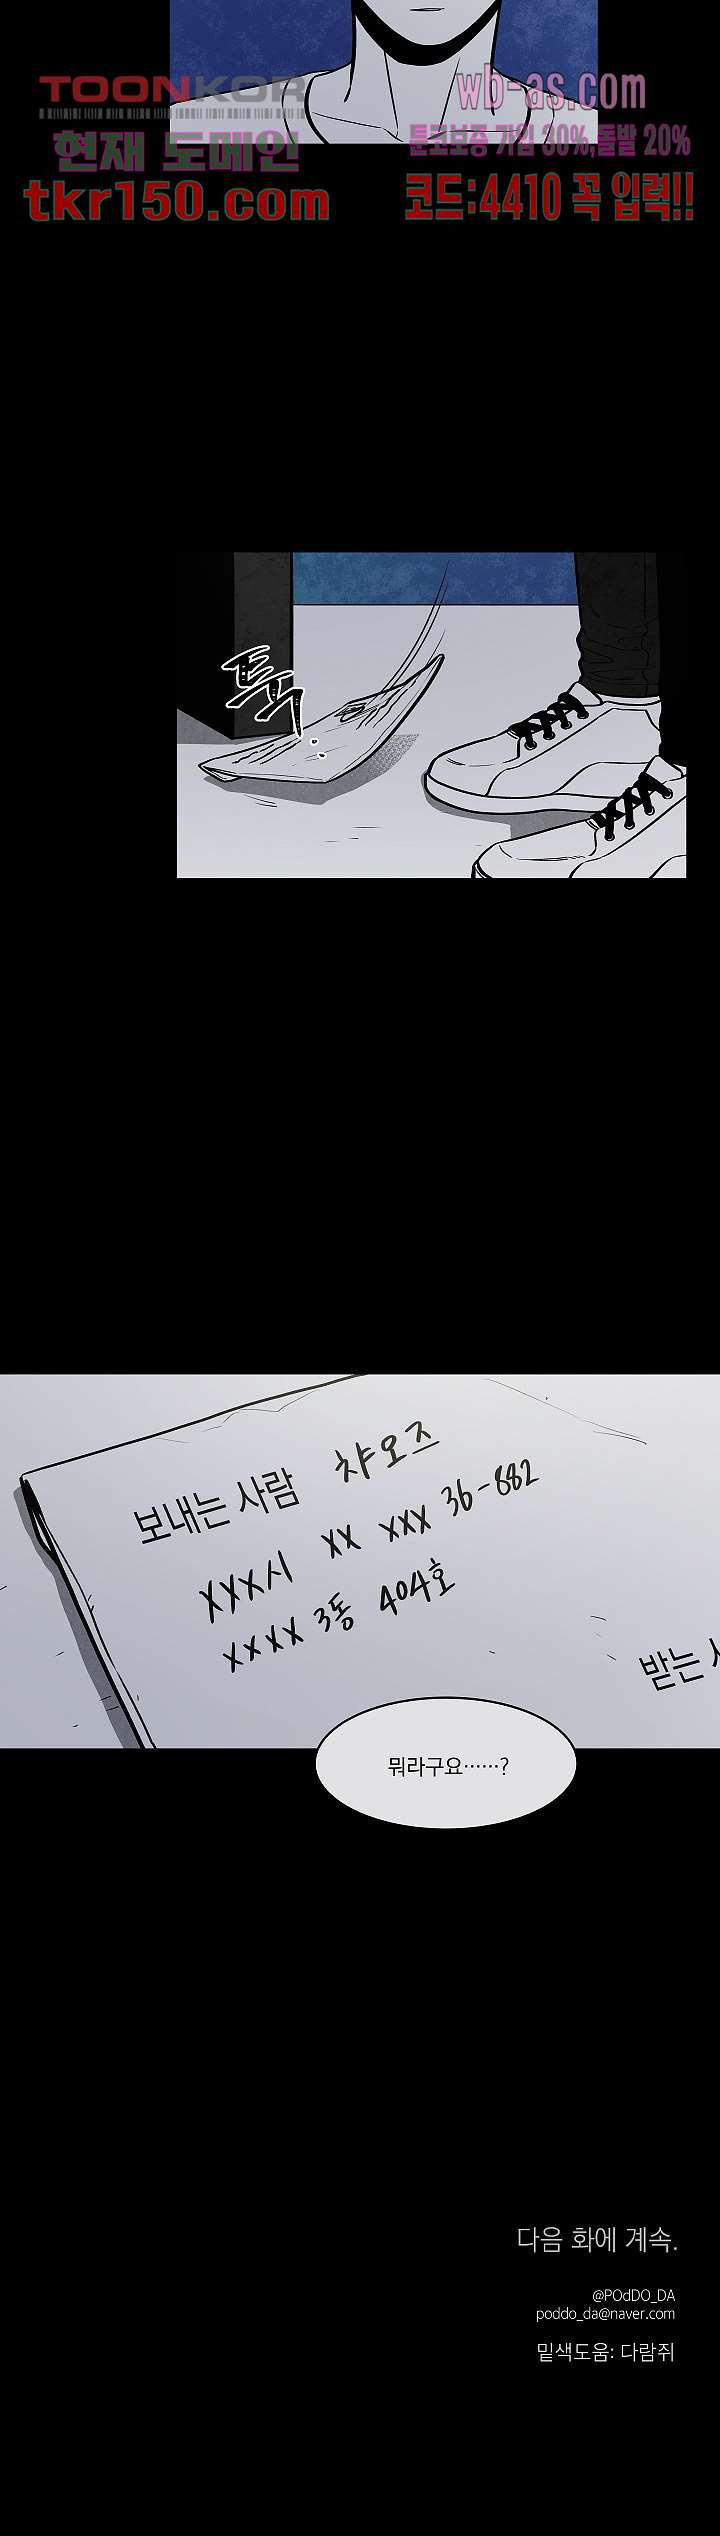 TOONKOR
현재 도메인
tkr150.com
wb-as.com
툰코보증 가입 30%,돌발 20%
코드:4410 꼭 입력!!
툭
보내는 사람 챠오즈
XXX시 XX XXX 36-882
XXXX 3동 404호
받는 사
뭐라구요……?
다음 화에 계속.
@POdDO_DA
poddo_da@naver.com
밑색도움: 다람쥐